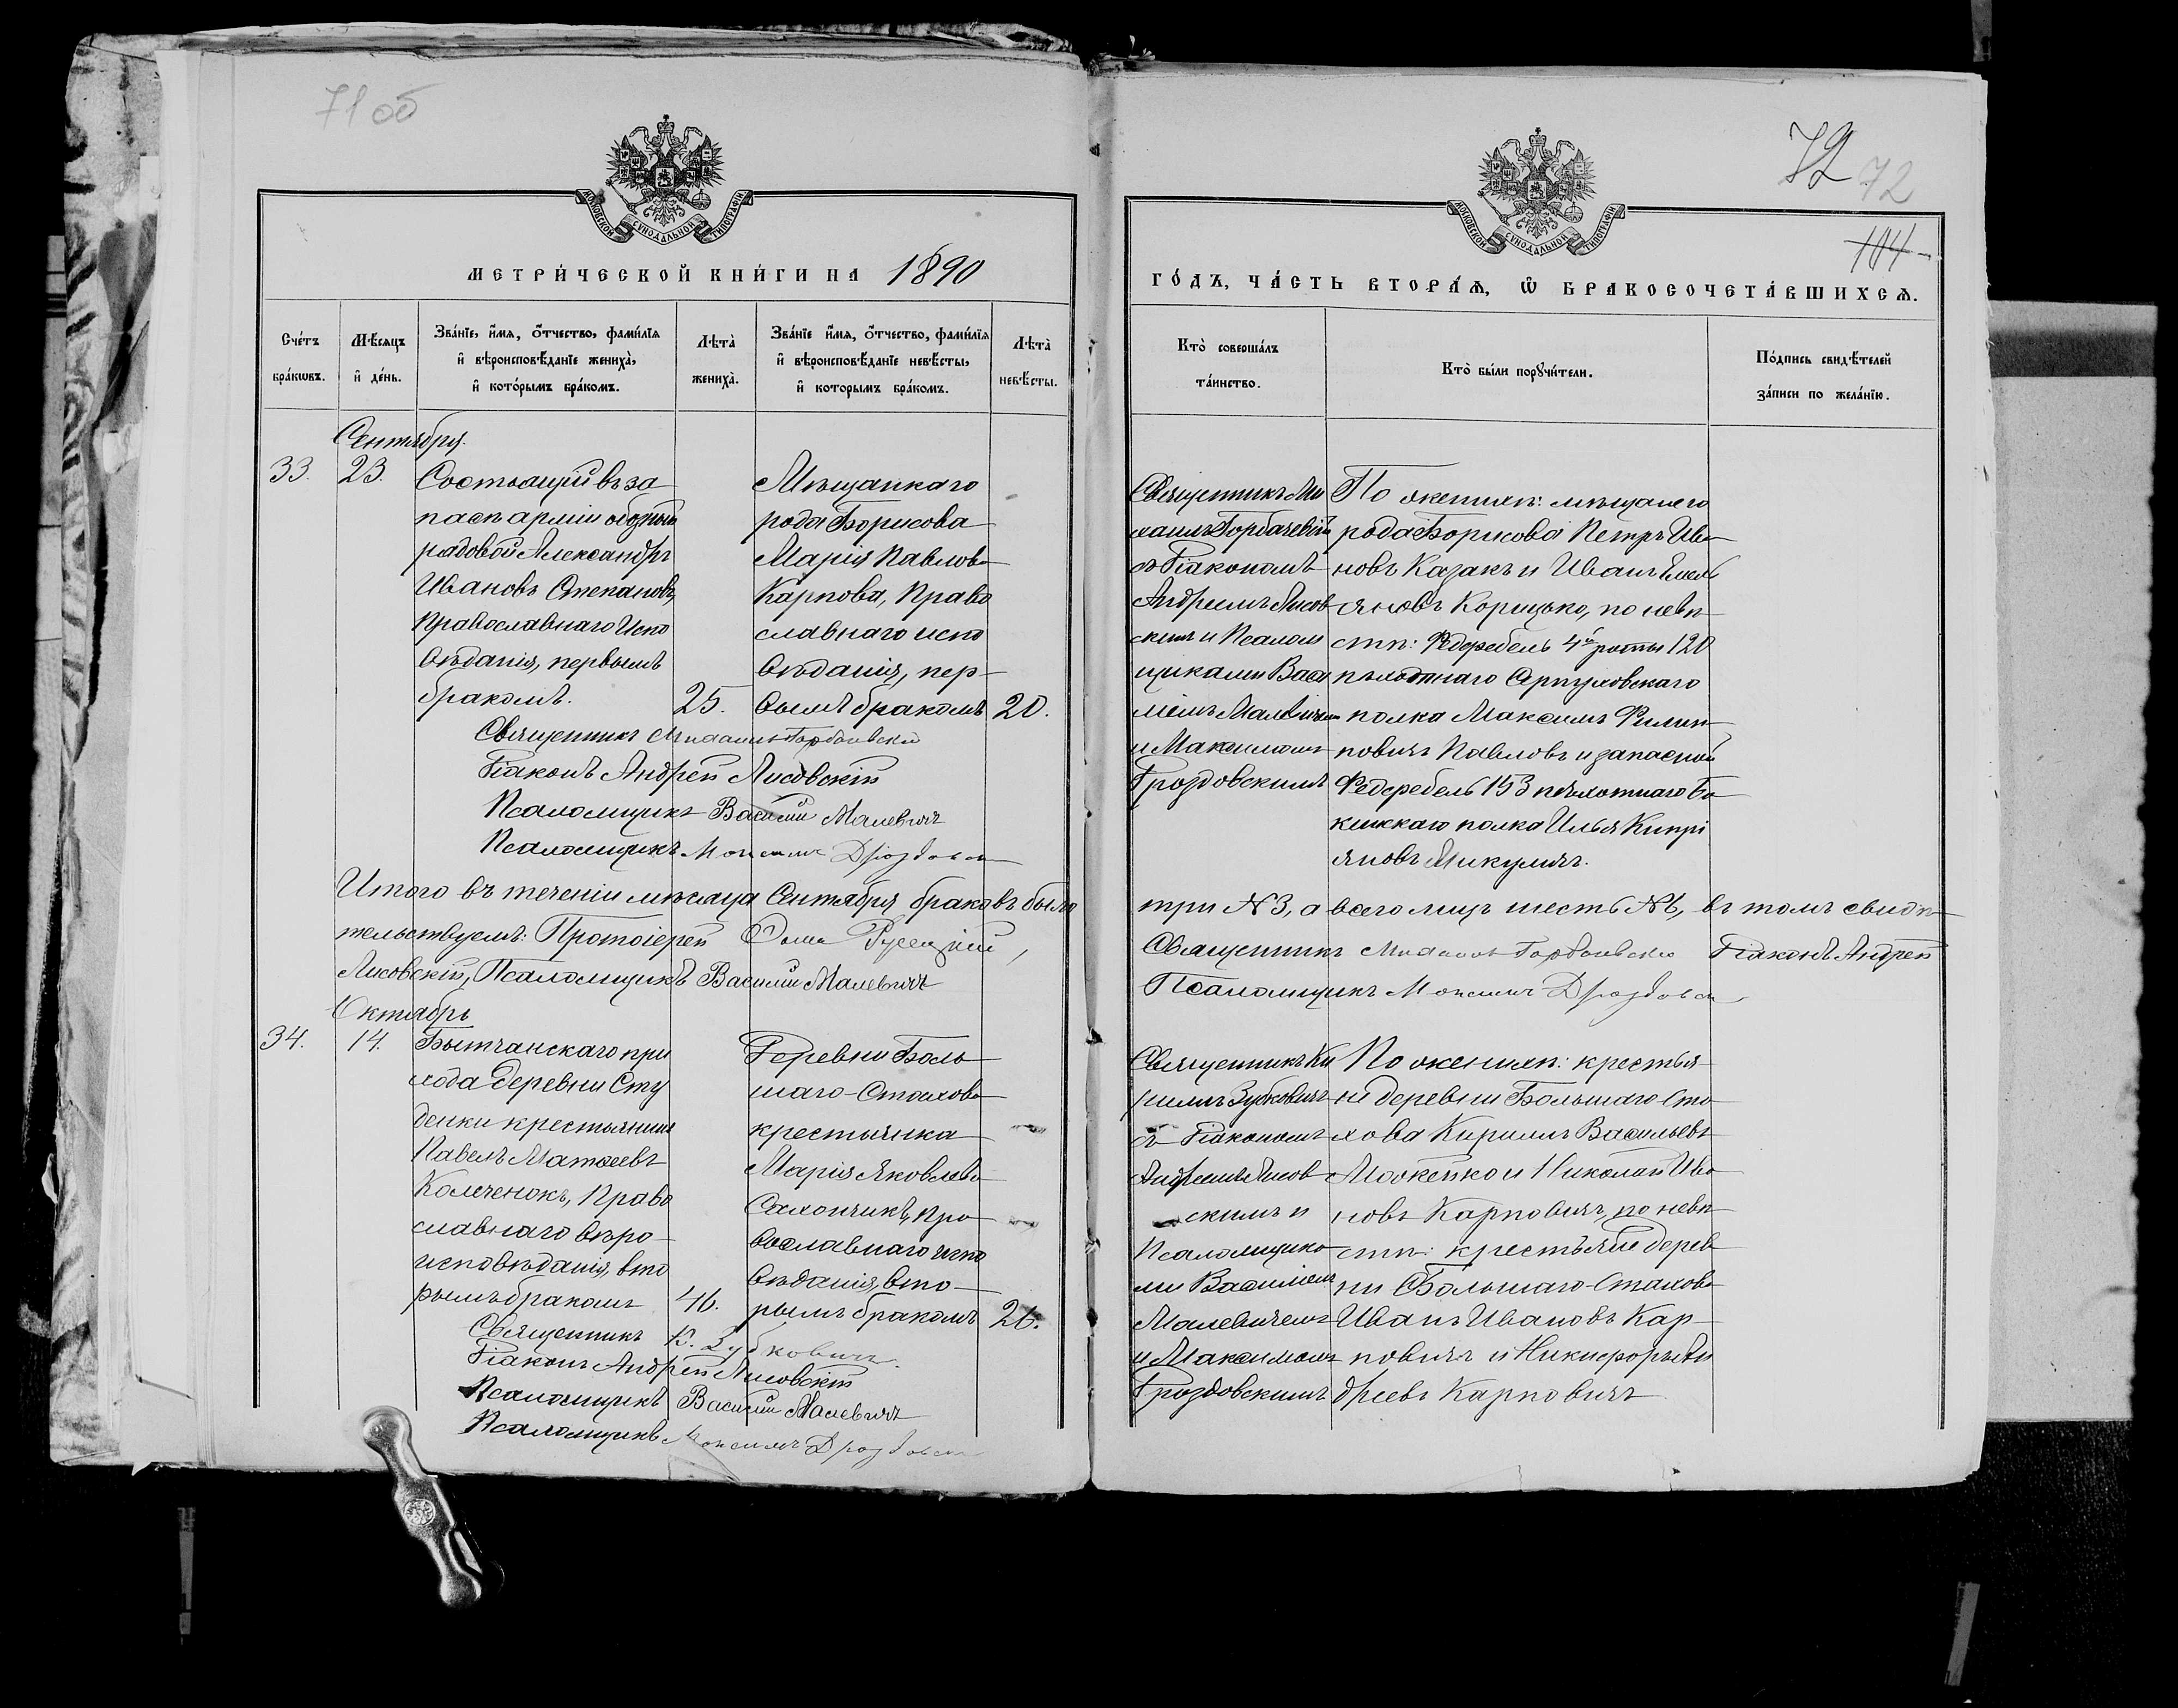 71 об
МОСКОВСКОЙ СѴНОДАЛЬНОЙ ТИПОГРАФІИ
МЕТРИ́ЧЕСКОЙ КНИ́ГИ НА 1890
Сче́тъ бра́кωвъ.
Мѣ́сяцъ и҆ де́нь.
Зва́нїе, и҆́мя, ѻ҆́тчество, фами́лїя и҆ вѣроисповѣ́данїе жениха̀, и҆ кото́рымъ бра́комъ.
Лѣта̀ жениха̀.
Зва́нїе и҆́мя, ѻ҆́тчество, фами́лїя и҆ вѣроисповѣ́данїе невѣ́сты, и҆ которымъ бра́комъ.
Лѣта̀ невѣ́сты.
Сентябрь.
33.
23.
Состоящій въ за
пасѣ арміи
рядовой Александръ
Ивановъ Степановъ,
Православнаго Испо
вѣданія, первымъ
бракомъ.
25.
Мѣщанкаго
рода Борисова
Марія Павлова
Карпова, Право
славнаго испо
вѣданія, пер-
вымъ бракомъ
20.
Священникъ Михаилъ
Діаконъ Андрей Лисовскій
Псаломщикъ Василій Малевичъ
Псаломщикъ Максимъ Дроздовск
Итого въ теченіи мѣсяца Сентября браковъ было
тельствуемъ: Протоіерей Ѳома Русецкій,
Лисовскій, Псаломщикъ Василій Малевичъ
Октябрь
34.
14.
Бытчанскаго при
хода деревни Сту
денки крестьянинъ
Павелъ Матѳеевъ
Колченокъ, Право
славнаго вѣро-
исповѣданія, вто
рымъ бракомъ
46.
Деревни Боль
шаго-Стахова
крестьянка
Марія Яковлева
Сахончикъ, Пра
вославнаго испо
вѣданія, вто-
рымъ бракомъ
26.
Священникъ К. Зубковичъ.
Діаконъ Андрей Лисовскій
Псаломщикъ Василій Малевичъ
Псаломщикъ Максимъ Дроздовск
72 72
104
МОСКОВСКОЙ СѴНОДАЛЬНОЙ ТИПОГРАФІИ
ГО́ДЪ, ЧА́СТЬ ВТОРА́Ѧ, Ѽ БРАКОСОЧЕТА́ВШИХСѦ.
Кто̀ соверша́лъ та́инство.
Кто̀ бы́ли порꙋчи́тели.
По́дпись свидѣ́телей за́писи по жела́нїю.
Священникъ Ми
хаилъ Горбачевскій
съ Діакономъ
Андреемъ Лисов
скимъ и Псалом
щиками Васи
ліемъ Малевичемъ
и Максимомъ
Дроздовскимъ
По женихѣ: мѣщане го
рода Борисова Петръ Ива
новъ Казакъ и Иванъ Емель
яновъ Корицько, по невѣ
стѣ: Фелдфебель 4й роты 120
пѣхотнаго Серпуховскаго
полка Максимъ Филип
повичъ Павловъ и запасной
Фелдфебель 153 пѣхотнаго Ба
кинскаго полка Илья Кипрі
яновъ Микуличъ.
три №3, а всего лицъ шесть №6, въ томъ свидѣ
Священникъ Михаилъ Діаконъ Андрей
Псаломщикъ Максимъ Дроздовск
Священникъ Ки
риллъ Зубковичъ
съ Діакономъ
Андреемъ Лисов
скимъ и
Псаломщика
ми Василіемъ
Малевичемъ
и Максимомъ
Дроздовскимъ
По женихѣ: крестья
не деревни Большаго Ста
хова Кириллъ Васильевъ
Можейко и Николай Ива
новъ Карповичъ, по невѣ
стѣ: крестьяне дерев
ни Большаго-Стахова
Иванъ Ивановъ Кар-
повичъ и Никифоръ Ан
дреевъ Карповичъ